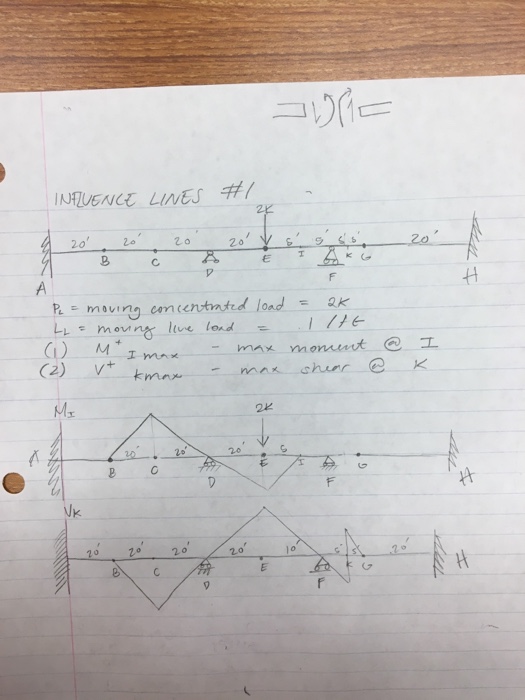 INFLUENCE LINES #1
2K
20' 20' 20' 20' 5' 5' 5' 5' 20'
A B C D E I F K G H
PL = moving concentrated load = 2K
LL = moving live load = 1 k/ft
(1) M+ I max - max moment @ I
(2) V+ kmax - max shear @ K
MI
2K
20' 20' 20' 5
A B C D E I F G H
VK
20' 20' 20' 20' 10' 5' 5' 20'
B C D E F K G H